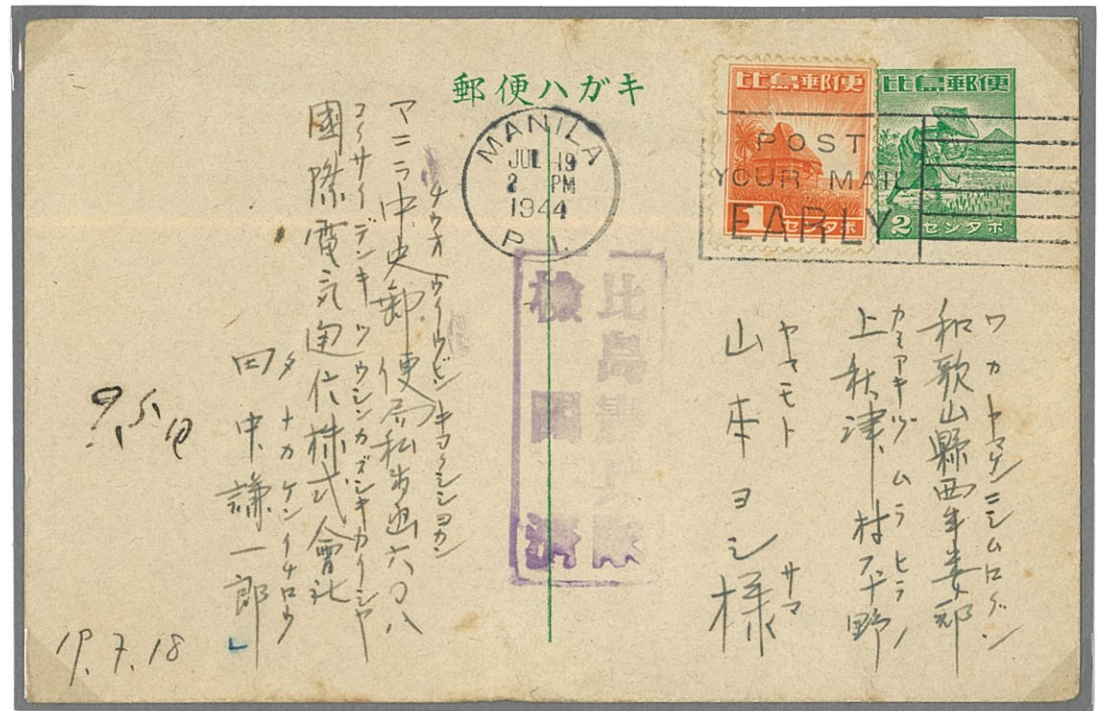 郵便ハガキ
比島郵便
1センタボ
比島郵便
2センタボ
MANILA
JUL 19
2 PM
1944
P. I.
POST
YOUR MAIL
EARLY
ワカヤマケンニシムログン
和歌山縣西牟婁郡
カミアキヅムラヒラノ
上秋津村平野
ヤマモト サマ
山本ヨシ様
比島憲兵隊
検閲済
マニラ中央郵便局私書函六〇八
コクサイデンキツウシンカブシキカイシヤ
國際電気通信株式會社
タナカケンイチロウ
田中謙一郎
19.7.18